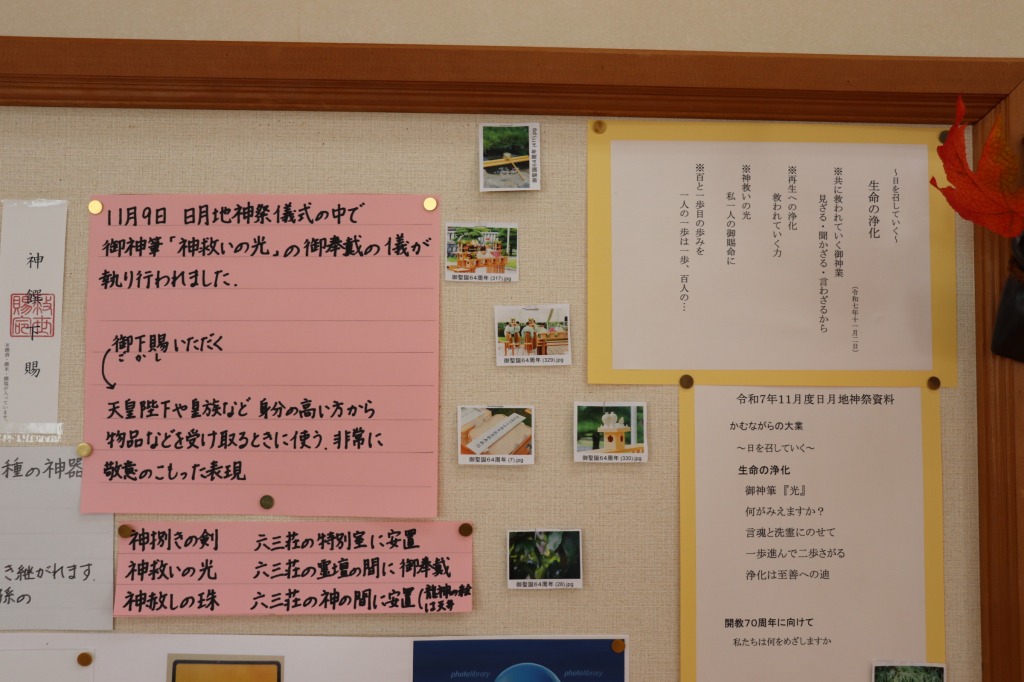 神饌下賜
種の神器
き継がれます.
孫の
11月9日 日月地神祭儀式の中で
御神筆「神救いの光」の御奉戴の儀が
執り行われました.
御下賜いただく
ごかし
天皇陛下や皇族など 身分の高い方から
物品などを受け取るときに使う. 非常に
敬意のこもった表現
神捌きの剣 六三荘の特別室に安置
神救いの光 六三荘の霊壇の間に御奉戴
神赦しの珠 六三荘の神の間に安置(龍神の絵
は天井
御聖誕64周年 (317).jpg
御聖誕64周年 (329).jpg
御聖誕64周年 (7).jpg
御聖誕64周年 (330).jpg
御聖誕64周年 (28).jpg
~日を召していく~
生命の浄化
(令和七年十一月二日)
※共に救われていく御神業
見ざる・聞かざる・言わざるから
※再生への浄化
救われていく力
※神救いの光
私一人の御賜命に
※百と一歩目の歩みを
一人の一歩は一歩、百人の…
令和7年11月度日月地神祭資料
かむながらの大業
~日を召していく~
生命の浄化
御神筆『光』
何がみえますか?
言魂と洗霊にのせて
一歩進んで二歩さがる
浄化は至善への迪
開教70周年に向けて
私たちは何をめざしますか
photolibrary
photolibrary